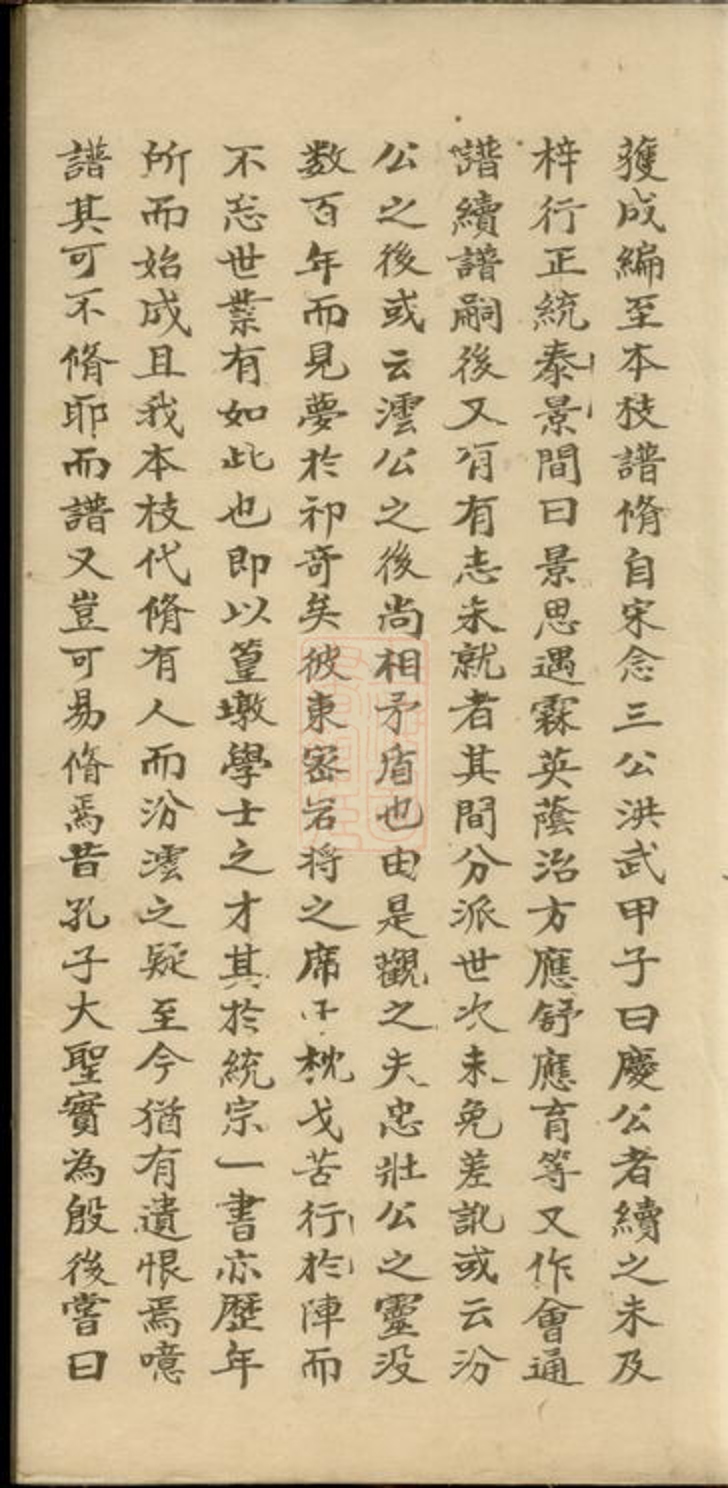 獲成編至本枝譜脩自宋念三公洪武甲子曰慶公者續之未及
梓行正統泰景間曰景思遇霖英蔭治方應舒應育等又作會通
譜續譜嗣後又有有志未就者其間分派世次未免差訛或云汾
公之後或云澐公之後尚相矛盾也由是觀之夫忠壯公之靈没
数百年而見夢於祁奇矣彼東密岩将之席子枕戈苦行於陣而
不忘世業有如此也即以篁墩學士之才其於統宗一書亦歷年
所而始成且我本枝代脩有人而汾澐之疑至今猶有遺恨焉噫
譜其可不脩耶而譜又豈可易脩焉昔孔子大聖實為殷後嘗曰